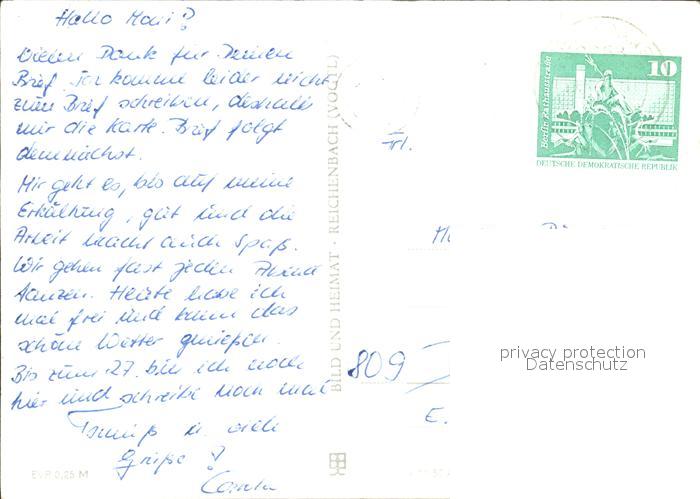 Hallo Moni!
Vielen Dank für Deinen
Brief. Ich komme leider nicht
zum Brief schreiben, deshalb
nur die Karte. Brief folgt
demnächst.
Mir geht es, bis auf meine
Erkältung, gut und die
Arbeit macht auch Spaß.
Wir gehen fast jeden Abend
tanzen. Heute habe ich
mal frei und kann das
schöne Wetter genießen.
Bis zum 27. bin ich noch
hier und schreibe noch mal
Tschüß u. viele
Grüße!
EVP 0,25 M
BILD UND HEIMAT · REICHENBACH (VOGTL)
Frl.
809
E.
10
Berlin, Rathausstraße
DEUTSCHE DEMOKRATISCHE REPUBLIK
privacy protection
Datenschutz